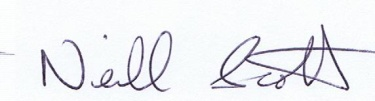 Niall Scott